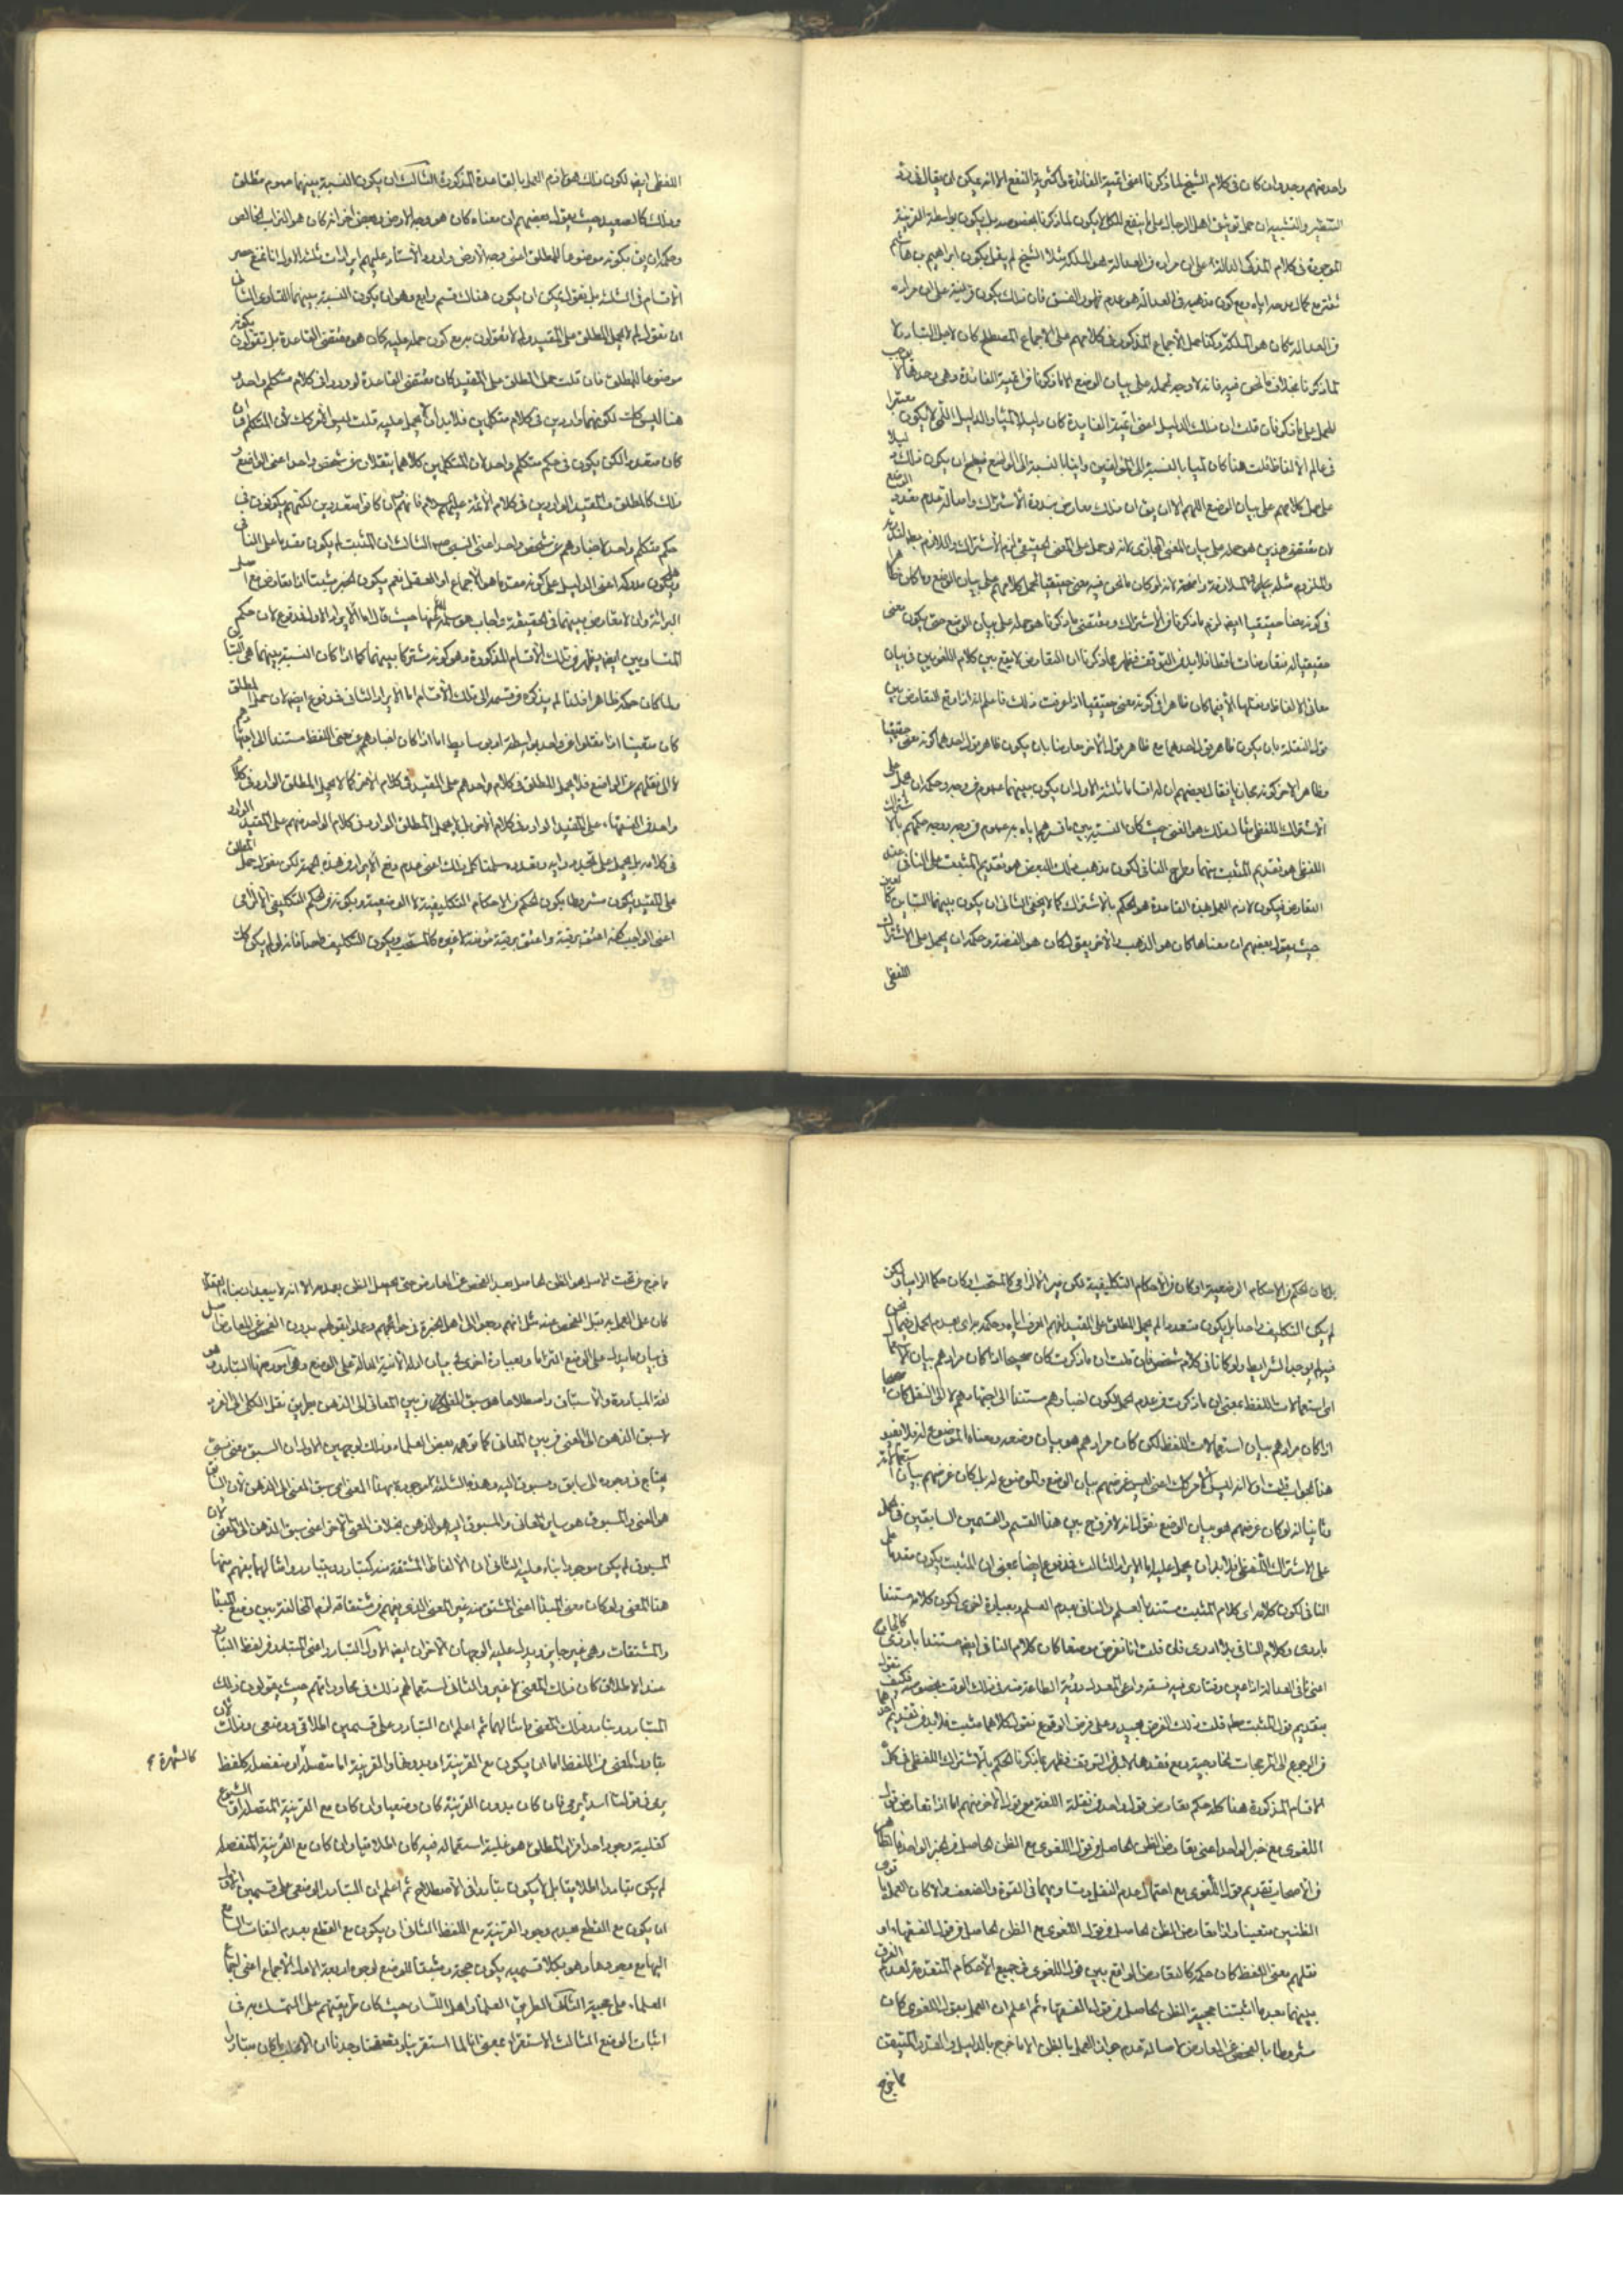 واحد منهم وجد وان كان فى كلام الشيخ لما ذكرنا اعنى اتمية الفائدة واكثرية النفع الا انه يمكن ان يقال فى
التنظير والتشبيه ان حمل توثيق اهل الرجال على ما ينفع الكل لا يكون لما ذكرنا بخصوصه بل يكون بواسطة القرينة
الموجودة فى كلام المزكى الدالة على ان مراده فى العدالة هو الملكة مثلا الشيخ لم يقل بكون ابراهيم بن هاشم
ثقة مع كمال مدحه اياه ومع كون مذهبه فى العدالة هو عدم ظهور الفسق فان ذلك يكون قرينة على ان مراده
فى العدالة كان هو الملكة وكذا حمل الاجماع المذكور فى كلامهم على الاجماع المصطلح كان لاجل التبادر لا
لما ذكرنا بخلاف ما نحن فيه فانه لا وجه لحمله على بيان الوضع الا ما ذكرنا من اتمية الفائدة وهى وحدها لا يوجب
للحمل على ما ذكر فان قلت ان ذلك الدليل اعنى اتمية الفايدة كان دليلا لميا والدليل اللمى لا يكون معتبرا
فى عالم الالفاظ قلت هنا كان لميا بالنسبة الى اللغويين وانيا بالنسبة الى الواضع فيصح ان يكون ذلك دليلا
على حمل كلامهم على بيان الوضع اللهم الا ان يق ان ذلك معارض بندرة الاشتراك واصالة عدم تعدد الوضع
لان مقتضى هذين هو حمله على بيان المعنى المجازى لانه لو حمل على المعنى الحقيقى لزم الاشتراك واللازم بط
والملزوم مثله بيان الملازمة واضحة لانه لو كان ما نحن فيه معنى حقيقيا لحمل كلامهم على بيان الوضع وما كان
فى كونه معنا حقيقيا ايض لزم ما ذكرنا من الاشتراك ومقتضى ما ذكرنا هو حمله على بيان الوضع حتى يكون معنى
حقيقيا له فتعارضا وتساقطا فلا بد من التوقف فظهر مما ذكرنا ان التعارض لا يقع بين كلام اللغويين فى بيان
معانى الالفاظ ونقلها الا فيما كان ظاهرا فى كونه معنى حقيقيا اذا عرفت ذلك فاعلم انه اذا وقع التعارض بين
قول النقلة بان يكون ظاهر قول احدهما مع ظاهر قول الاخر معارضا بان يكون ظاهر قول احدهما كونه معنى حقيقيا
وظاهر الاخر كونه مجازيا فقال بعضهم ان له اقساما ثلثة الاول ان يكون بينهما عموم من وجه وحكمه ان يحمل على
الاشتراك اللفظى مثال ذلك هو الغنى حيث كان النسبة بين ما فسرهما اياه به عموم من وجه ووجه حكمهم بالاشتراك
اللفظى هو تقديم المثبت منهما وطرح النافى لكون مذهب ذلك البعض هو تقديم المثبت على النافى عند
التعارض فيكون لازم العمل بهذه القاعدة هو الحكم بالاشتراك كما لا يخفى الثانى ان يكون بينهما التباين كالعين
حيث يقول بعضهم ان معناها كان هو الذهب والاخر يق كان هو الفضة وحكمه ان يحمل على الاشتراك
اللفظى
اللفظى ايض لكون ذلك هو لازم العمل بالقاعدة المذكورة الثالث ان يكون النسبة بينهما عموم مطلق
وذلك كالصعيد حيث يقول بعضهم ان معناه كان هو وجه الارض وبعض اخر انه كان هو التراب الخالص
وحكمه ان يق بكونه موضوعا للمطلق اعنى وجه الارض واورد الاستاد عليهم ايرادات ثلثة الاول انا نمنع حصر
الاقسام فى الثلثة بل نقول يمكن ان يكون هناك قسم رابع وهو ان يكون النسبة بينهما التساوى الثانى
ان نقول لم لا يحمل المطلق على المقيد ولم لا تقولون به مع كون حمله عليه كان هو مقتضى القاعدة بل تقولون بكونه
موضوعا للمطلق فان قلت حمل المطلق على المقيد كان مقتضى القاعدة لو وردا فى كلام متكلم واحد و
هنا ليس كك لكونهما واردين فى كلام متكلمين فلا بد ان لا يحمل عليه قلت ليس الامر كك لان المتكلم وان
كان متعددا لكن يكون فى حكم متكلم واحد لان المتكلمين كلاهما ينقلان عن شخص واحد اعنى الواضع و
ذلك كالمطلق والمقيد الواردين فى كلام الائمة عليهم السلام فانهم وان كانوا متعددين لكنهم يكونون فى
حكم متكلم واحد لاخبارهم عن شخص واحد اعنى النبى ص الثالث ان المثبت لم يكون مقدما على النافى
ويكون مدركه اعنى الدليل على كونه مقدما هو الاجماع او العقل نعم يكون الخبر مثبتا اذا تعارض مع اصل
البرائة وان لا تعارض بينهما فى الحقيقة واجاب هو سلمه الله عنها حيث قال اما الايراد الاول فمدفوع لان حكم
المتساويين ايض يظهر من تلك الاقسام المذكورة وهو كونه مشتركا بينهما كما اذا كان النسبة بينهما هى التباين
ولما كان حكمه ظاهرا فلذا لم يذكره فى قسمه الى تلك الاقسام اما الايراد الثانى فمدفوع ايض لان حمل المطلق
كان متعينا اذا نقلوا عن واحد بواسطة او بوسايط اما اذا كان اخبارهم عن معنى اللفظ مستندا الى اجتهادهم
لا الى نقلهم عن الواضع فلا يحمل المطلق فى كلام واحدهم على المقيد فى كلام الاخر كما لا يحمل المطلق الوارد فى كلام
واحد من الفقهاء على المقيد الوارد فى كلام الاخر بل لا يحمل المطلق الوارد فى كلام الواحد منهم على المقيد الوارد
فى كلامه بل يحمل على تجدد رايه وتعدده سلمنا كل ذلك اعنى عدم دفع الايراد من هذه الجهة لكن نقول حمل المطلق
على المقيد يكون مشروطا بكون الحكم من الاحكام التكليفية لا الوضعية وبكونه من الحكم التكليفى الالزامى
اعنى الواجب كقوله اعتق رقبة واعتق رقبة مؤمنة لا غيره كالمستحب وبكون التكليف واحدا فانه لو لم يكن كك
بل كان الحكم من الاحكام الوضعية او كان من الاحكام التكليفية لكن غير الالزامى كالمستحب او كان حكما الزاميا ولكن
لم يكن التكليف واحدا بل يكون متعددا لم يحمل المطلق على المقيد لفهم العرف اياه وحكمه جرى بعدم الحمل فيما نحن
فيه لم يوجد الشرايط ولو كانا فى كلام شخص فان قلت ان ما ذكرت كان صحيحا اذا كان مرادهم بيان الاستعمال
اى استعمالات اللفظ بمعنى ان ما ذكرت من عدم الحمل لكون اخبارهم مستندا الى اجتهادهم لا الى النقل كان صحيحا
اذا كان مرادهم بيان استعمالات اللفظ لكن كان مرادهم هو بيان وضعه ومعناه الموضوع له فلا يفيد
هذا الجواب قلت اولا انه ليس الامر كك اعنى ليس غرضهم بيان الوضع والموضوع له بل كان غرضهم بيان استعمالاته
وثانيا انه لو كان غرضهم هو بيان الوضع نقول انه لا فرق بين هذا القسم والقسمين السابقين فى الحمل
على الاشتراك اللفظى فلا بد ان يحمل عليه اما الايراد الثالث فمدفوع ايضا بمعنى ان المثبت يكون مقدما على
النافى لكون كلامه اى كلام المثبت مستندا بالعلم والنافى بعدم العلم وبعبارة اخرى لكون كلامه مستندا
بادرى وكلام النافى بلا ادرى فان قلت انا نفرض موضعا كان كلام النافى ايض مستندا بادرى كالجارح
اعنى نافى العدالة اذا عين وقتا رى فيه فسقه وادعى المعدل رؤية الطاعة منه فى ذلك الوقت بخصوصه فكيف تقول
بتقديم قول المثبت مطم قلت ذلك الفرض بعيد وعلى فرض الوقوع نقول كلاهما مثبت فلا بد فى تقديم احدهما
من الرجوع الى المرجحات الخارجية ومع فقدها لا بد من التوقف فظهر مما ذكرنا الحكم بالاشتراك اللفظى فى كل
الاقسام المذكورة هذا كله حكم تعارض قول واحد من نقلة اللغة مع قول الاخر منهم اما اذا تعارض قول
اللغوى مع خبر الواحد اعنى تعارض الظن الحاصل من قول اللغوى مع الظن الحاصل من الخبر الواحد فالظاهر
من الاصحاب تقديم قول اللغوى مع احتمال عدم النقل وتساويهما فى القوة والضعف والا كان العمل باقوى
الظنين متعينا واذا تعارض الظن الحاصل من قول اللغوى مع الظن الحاصل من قول الفقهاء او
نقلهم معنى اللفظ كان حكمه كالتعارض الواقع بين قول اللغوى فى جميع الاحكام المتقدمة لعدم الفرق
بينهما بعد ما اثبتنا حجية الظن الحاصل من قول الفقهاء ثم اعلم ان العمل بقول اللغوى كان
مشروطا بالفحص عن المعارض لاصالة عدم جواز العمل بالظن الا ما خرج بالدليل والقدر المتيقن
مما خرج
ما خرج من تحت الاصل هو الظن الحاصل بعد الفحص عن المعارض حتى يحصل الظن بعدمه الا انه لا يبعد ان بناء العقلاء
كان على العمل به قبل الفحص عنه مثل انهم رجعوا الى اهل الخبرة فى حوائجهم وعملوا بقولهم بدون الفحص عن المعارض اصل
فى بيان ما يدل على الوضع التزاما وبعبارة اخرى فى بيان ادلة الانية الدالة على الوضع وهى امور منها التبادر وهو
لغة المبادرة والاستباق واصطلاحا هو سبق المعنى من بين المعانى الى الذهن بطريق نقل الكلى الى الفرد
لا سبق الذهن الى المعنى من بين المعانى كما توهمه بعض العلماء وذلك لوجهين الاول ان السبق بمعنى سبق
يحتاج فى وجوده الى سابق ومسبوق ومسبوق اليه وهذه الثلثة موجودة بهذا المعنى اى سبق المعنى الى الذهن لان السابق
هو المعنى والمسبوق هو ساير المعانى والمسبوق اليه هو الذهن بخلاف المعنى الاخر اعنى سبق الذهن الى المعنى لان
المسبوق لم يكن موجودا بناء عليه الثانى ان الالفاظ المشتقة منه كيتبادر ويتبادروا مثالهما يفهم منها
هذا المعنى ولو كان معنى المبدا اعنى المشتق منه غير المعنى الذى يفهم من مشتقاته لزم المخالفة بين وضع المبدا
والمشتقات وهى غير جايز ويدل عليه الوجهان الاخران ايض الاول التبادر اعنى المتبادر من لفظ التبادر
عند الاطلاق كان ذلك المعنى لا غير والثانى استعمالهم ذلك فى محاوراتهم حيث يقولون ذلك
المتبادر ويتبادر ذلك المعنى وامثالهما ثم اعلم ان التبادر على قسمين اطلاقى ووضعى وذلك لان
تبادر المعنى من اللفظ اما ان يكون مع القرينة او بدونها والقرينة اما متصلة او منفصلة كلفظ
كالشهرة
يرمى فى قولنا اسد يرمى فان كان بدون القرينة كان وضعيا وان كان مع القرينة المتصلة او الشيوع
كغلبة وجود احد افراد المطلق هو غلبة استعماله فيه كان اطلاقيا وان كان مع القرينة المنفصلة
لم يكن تبادرا اطلاقيا بل لا يكون تبادرا فى الاصطلاح ثم اعلم ان التبادر الوضعى على قسمين الاول
ان يكون مع القطع بعدم وجود القرينة مع اللفظ الثانى ان يكون مع القطع بعدم التفات السامع
اليها مع وجودها وهو بكلا قسميه يكون حجة ومثبتا للوضع لوجوه اربعة الاول الاجماع اعنى اجماع
العلماء على حجيته الثانى طريق العلماء واهل اللسان حيث كان طريقتهم على التمسك به فى
اثبات الوضع الثالث الاستقراء بمعنى انا لما استقرينا وتفحصنا وجدنا ان الاغلب ما كان متبادرا